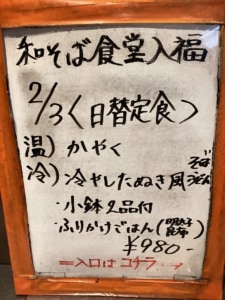 和そば食堂入福
2/3〈日替定食〉
温）かやく
冷）冷やしたぬき風 そば うどん
・小鉢2品付
・ふりかけごはん（明太子 昆布）
¥980-
＝入口はコチラ→